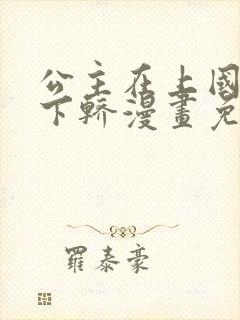 公主在上國
下轎漫畫免
羅泰豪